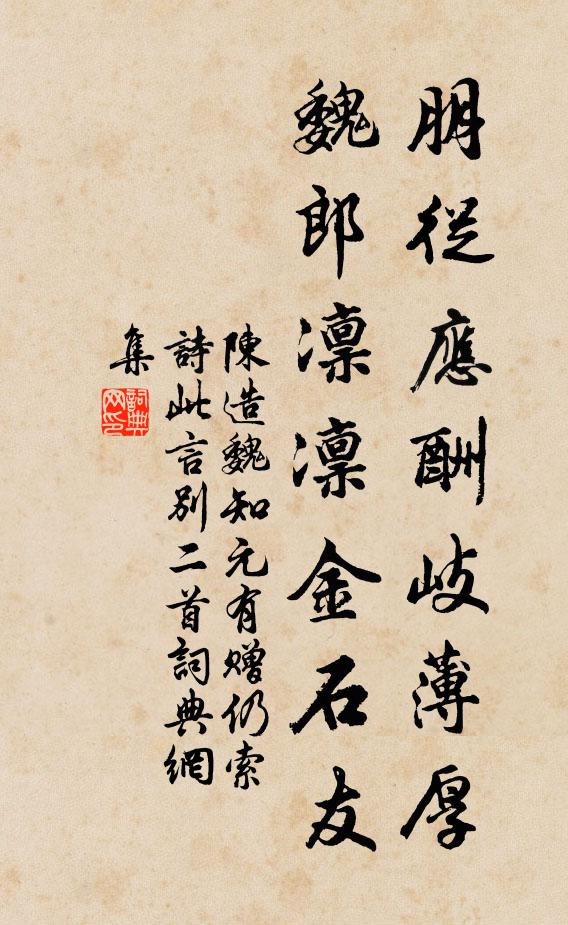 朋從應酬歧薄厚
魏郎凜凜金石友
陳造魏知元有贈仍索
詩此言別二首詞典網
集
詞典
网印